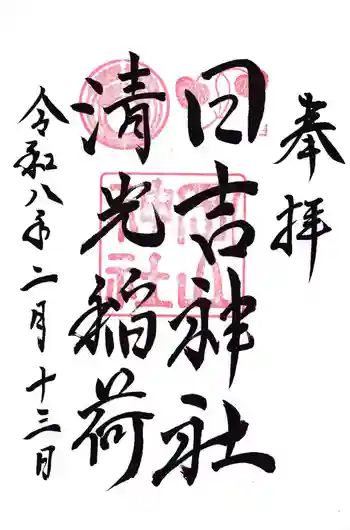 奉拝
日吉神社
清光稲荷
令和八年二月十三日